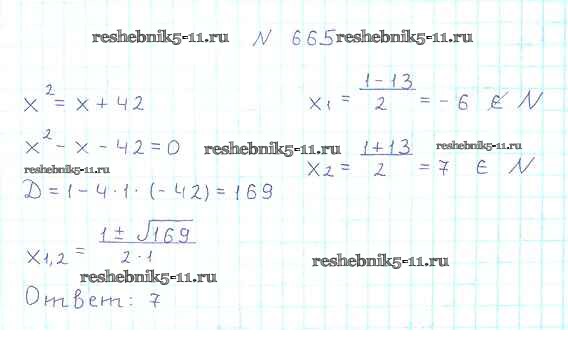 reshebnik5-11.ru N 665 reshebnik5-11.ru
x² = x + 42
x² - x - 42 = 0 reshebnik5-11.ru
reshebnik5-11.ru
D = 1 - 4 · 1 · (-42) = 169
x₁,₂ = (1 ± √169) / (2 · 1)
reshebnik5-11.ru
Ответ: 7
x₁ = (1 - 13) / 2 = -6 ∉ N
reshebnik5-11.ru
x₂ = (1 + 13) / 2 = 7 ∈ N
reshebnik5-11.ru